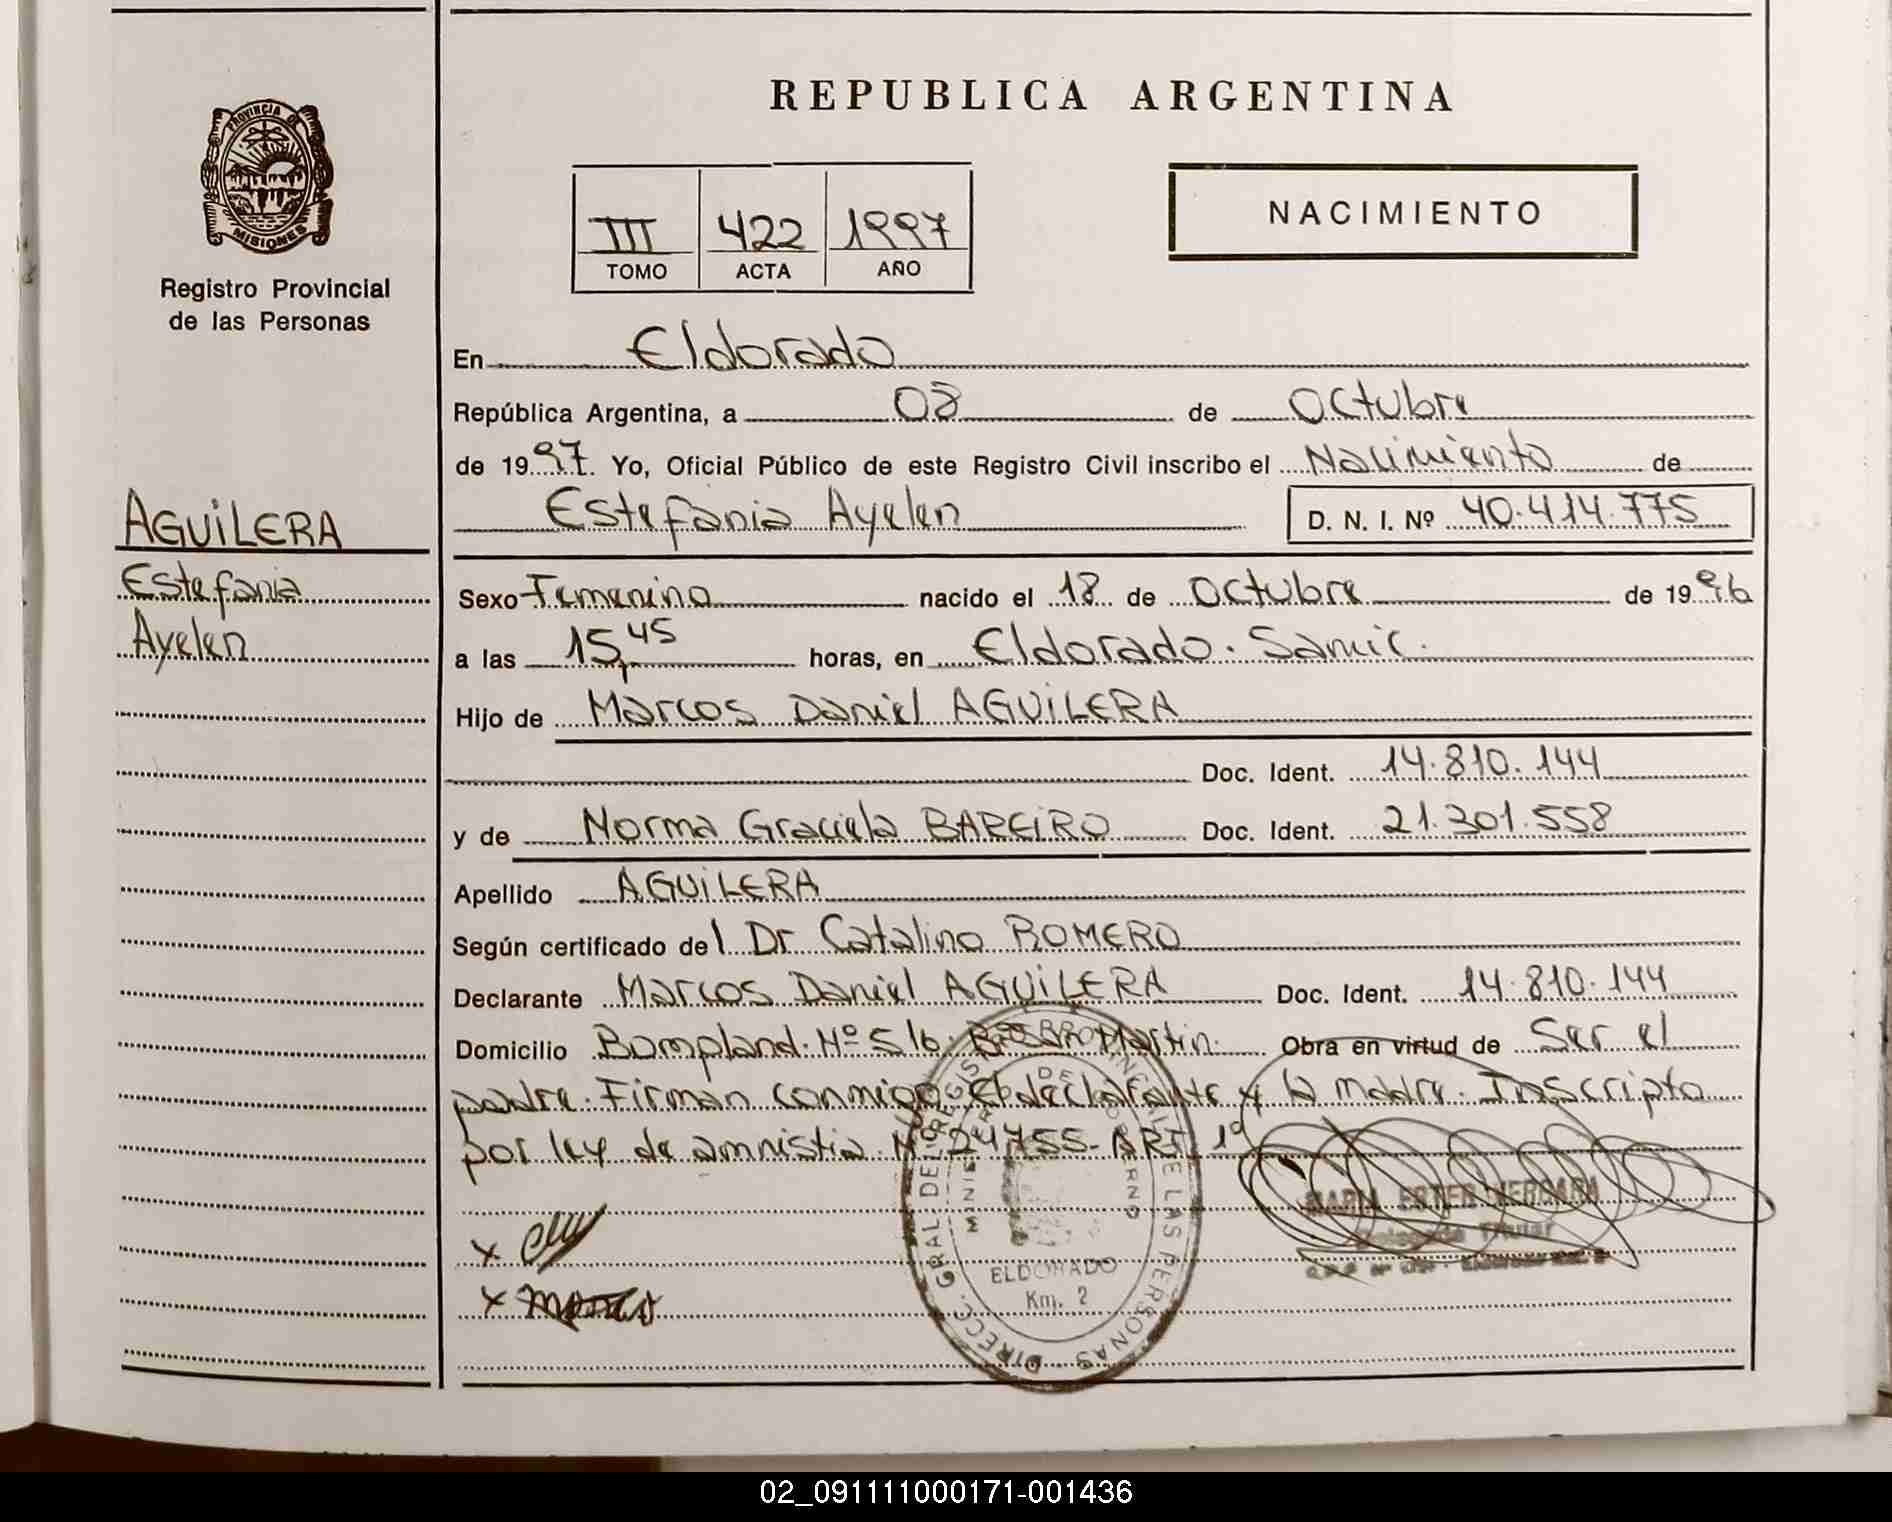 REPUBLICA ARGENTINA
PROVINCIA DE
MISIONES
Registro Provincial
de las Personas
III 422 1997
TOMO ACTA AÑO
NACIMIENTO
En Eldorado
República Argentina, a 08 de Octubre
de 1997. Yo, Oficial Público de este Registro Civil inscribo el Nacimiento de
Estefania Ayelen D. N. I. Nº 40.414.775
AGUiLERA
Estefania
Ayelen
Sexo Femenino nacido el 18 de Octubre de 1996
a las 15,45 horas, en Eldorado. Samic.
Hijo de Marcos Daniel AGUiLERA
Doc. Ident. 14.810.144
y de Norma Graciela BAREiRO Doc. Ident. 21.301.558
Apellido AGUiLERA
Según certificado del Dr Catalino ROMERO
Declarante Marcos Daniel AGUiLERA Doc. Ident. 14.810.144
Domicilio Bompland. Nº S/b. Martin. Obra en virtud de Ser el
padre. Firman conmigo El declarante y la madre. Inscripto
por ley de amnistia Nº 24755-ART 1º
DIRECC. GRAL DEL REGIS PROVINCIAL DE LAS PERSONAS
ELDORADO
Km. 2
MARIA ESTER VERGARA
Delegada Titular
02_091111000171-001436